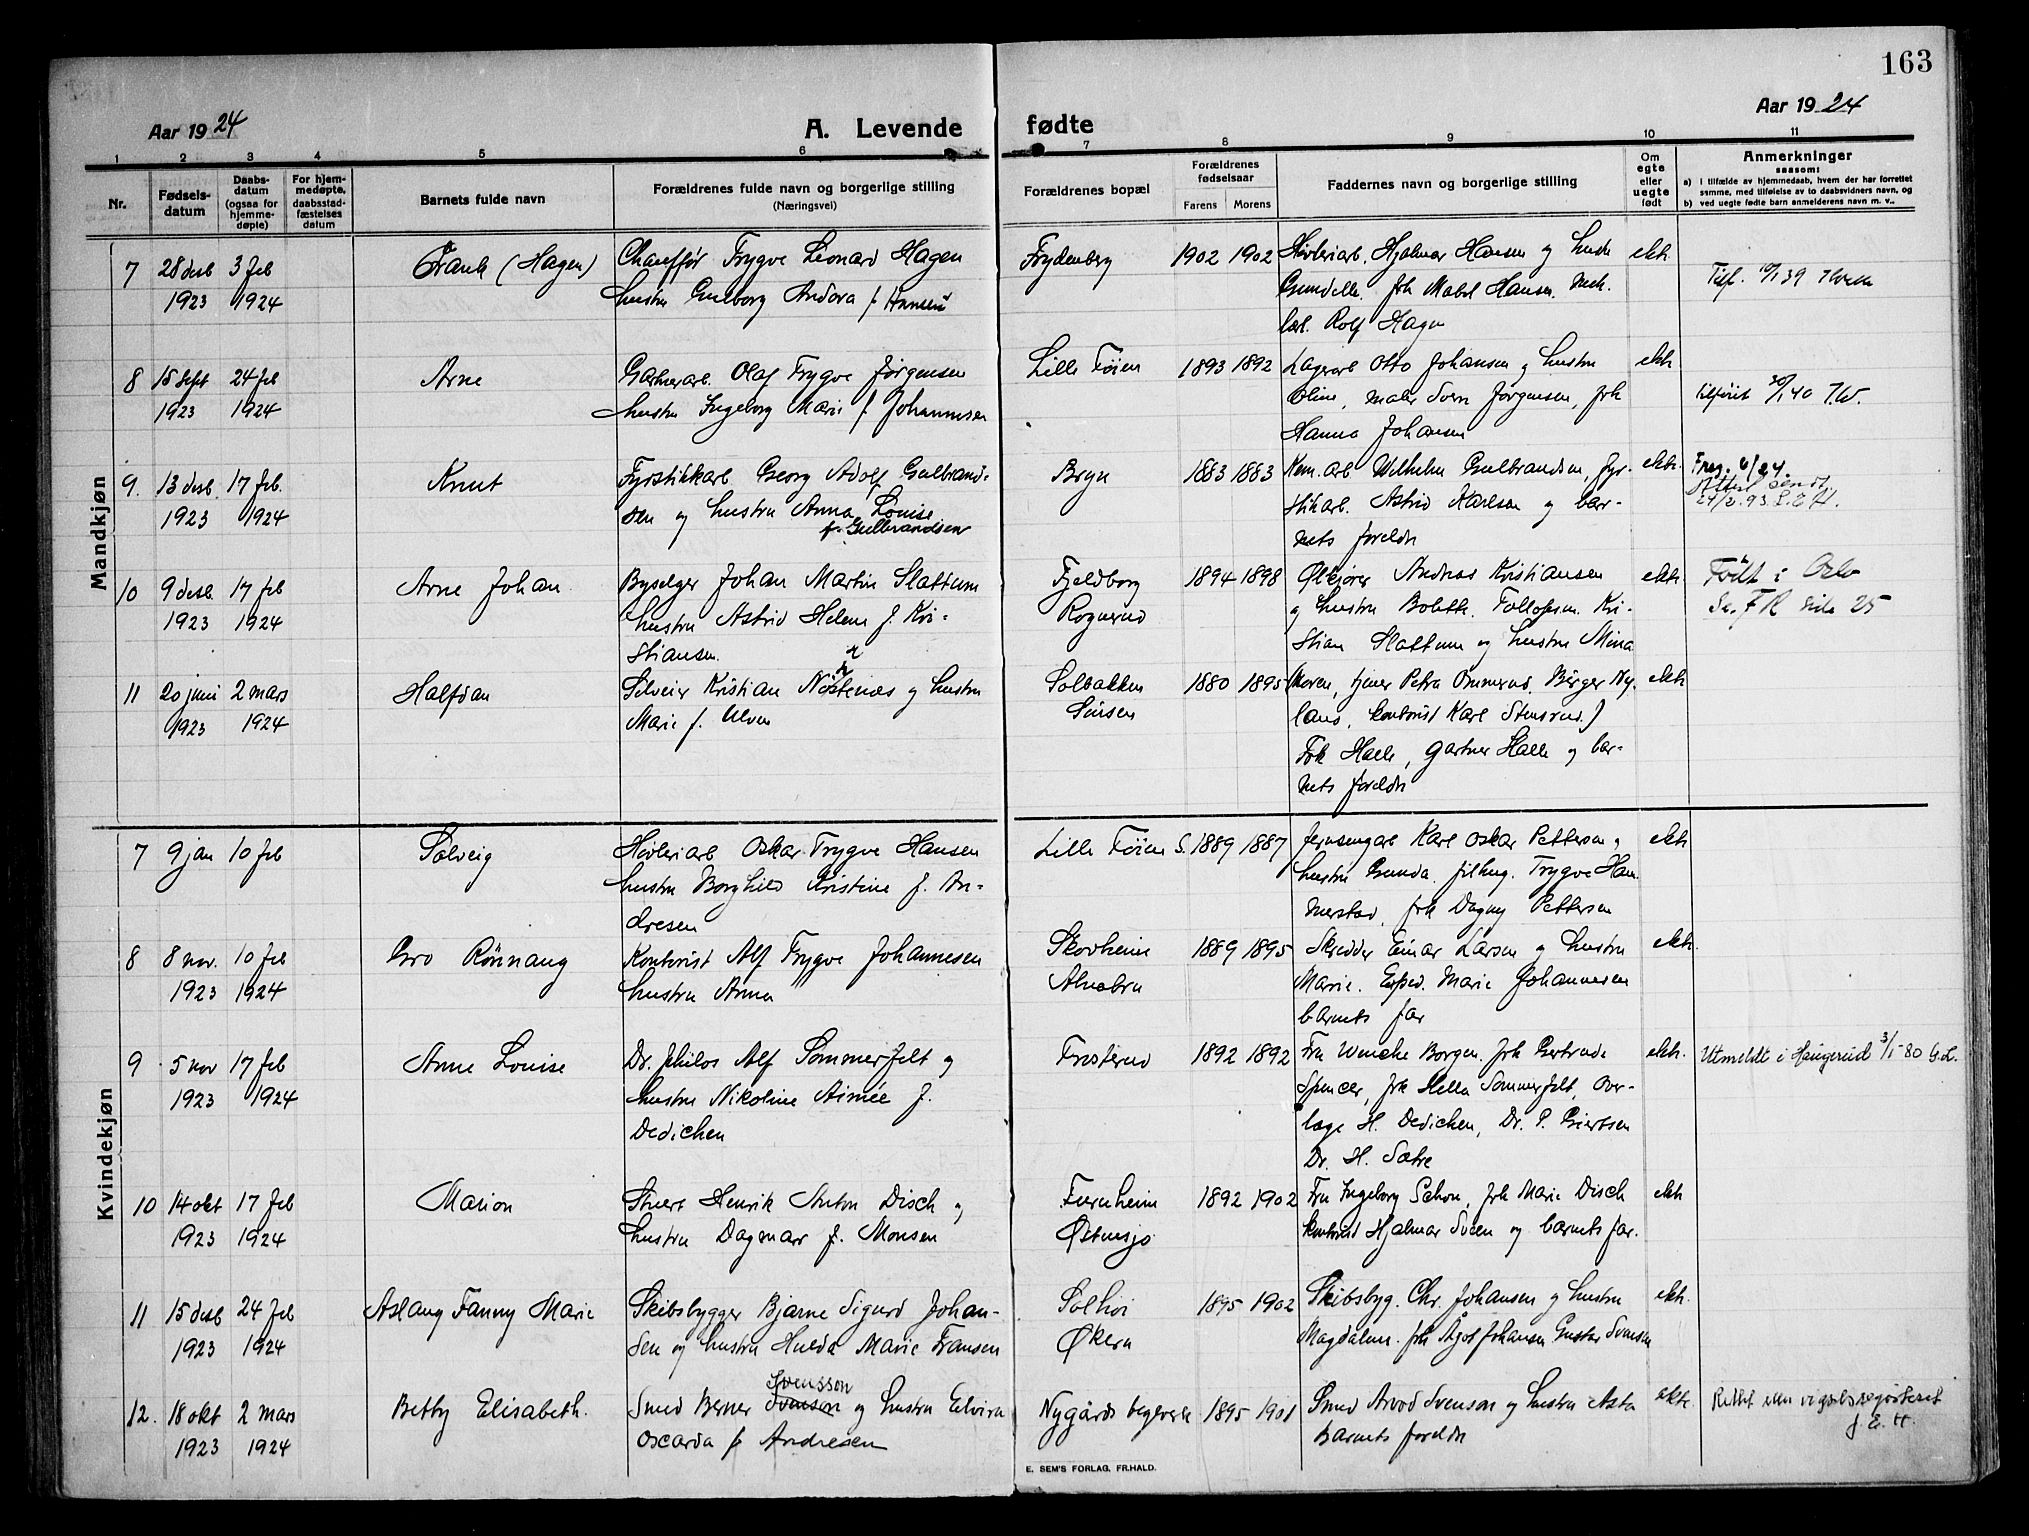 163
Aar 1924
A. Levende fødte
Aar 1924
1 2 3 4 5 6 7 8 9 10 11
Nr.
Fødsels-
datum
Daabs-
datum
(ogsaa for
hjemme-
døpte)
For hjem-
medøpte,
daabsstad-
fæstelses
datum
Barnets fulde navn
Forældrenes fulde navn og borgerlige stilling
(Næringsvei)
Forældrenes bopæl
Forældrenes
fødselsaar
Farens Morens
Faddernes navn og borgerlige stilling
Om
egte
eller
uegte
født
Anmerkninger
saasom:
a) I tilfælde av hjemmedaab, hvem der har forrettet
samme, med tilføielse av to daabsvidners navn, og
b) ved uegte fødte barn anmelderens navn m. v.
Mandkjøn
7 28 desb 3 feb Frank (Hagen) Chauffør Trygve Leonard Hagen Frydenberg 1902 1902 Høvleriarb. Hjalmar Hansen og hustru ekte
1923 1924 hustru Gulborg Andora f. Hansen frk Mabel Hansen.
Rolf Hagen
8 15 sept 24 feb Arne Gartnerarb. Olaf Trygve Jørgensen Lille Tøien 1893 1892 Lagerarb Otto Johansen og hustru ekte
1923 1924 hustru Ingeborg Marie f. Johannesen Oline, maler Sven Jørgensen, frk tilføiet 40 T.W.
Hanna Johansen
9. 13 desb 17 feb. Knut Fyrstikkarb Georg Adolf Gulbrand- Bryn 1883 1883 Kom. arb Wilhelm Gulbrandsen, fyr- ekte.
1923 1924 sen og hustru Anna Louise stikarb. Astrid Karlsen og bar-
f. Gulbrandsen nets foreldre
10 9 desb. 17 feb Arne Johan Byselger Johan Martin Slattum Fjeldborg 1894 1898 Ølkjører Andreas Kristiansen ekte. Født i Oslo
1923 1924 hustru Astrid Helene f. Kri- Rognerud og hustru Bolette. Kri- Se. F R side 25
stiansen. stian Slattum og hustru Mina
11 20 juni 2 mars Halfdan Kristian Nøstenæs og hustru Solbakken 1880 1895 tjener Petra Birger Ny- ekte
1923 1924 Marie f. Ulven Sinsen laus, kontorist Karl Stensrud.
Frk Halle, gartner Halle og bar-
nets foreldre
Kvindekjøn
7 9 jan 10 feb Solveig Høvleriarb Oskar Trygve Hansen Lille Tøien S. 1889 1887 Karl Oskar Pettersen og ekte
hustru Borghild Kristine f. An- hustru Gunda. Trygve Ham-
dresen merstad, frk Dagny Pettersen
8 8 nov. 10 feb Gro Rönnaug Kontorist Alf Trygve Johannesen Skovheim 1889 1895 Skredder Einar Larsen og hustru ekte.
1923 1924 hustru Anna Alnabru Marie. Exped. Marie Johannesen
barnets far
9 5 nov 17 feb Anne Louise Dr. philos Alf Sommerfelt og Trosterud 1892 1892 Fru Wenche Borgen. frk Gertrude ekte. Utmeldt i Haugerud 3/1-80 G.L.
1923 1924 hustru Nikoline Aimée f. Spencer, frk Hella Sommerfelt, Over-
Dedichen læge H. Dedichen, Dr. P.
Dr. H. Sætre
10 14 okt 17 feb Marion Henrik Anton Disch og Furuheim 1892 1902 Fru Ingeborg Schou, frk Marie Disch ekte
1923 1924 hustru Dagmar f. Monsen Østensjø kontorist Hjalmar Sveen og barnets far.
11 15 desb 24 feb Aslaug Fanny Marie Skibsbygger Bjarne Sigurd Johan- Solhøi 1895 1902 Skibsbyg. Chr. Johansen og hustru ekte.
1923 1924 sen og hustru Hulda Marie Fransen Økern Magdalene. frk Johansen Gustav Svensen
12. 18 okt 2 mars Betty Elisabeth. Smed Berner Svensson og hustru Elvira Nygårds teglverk 1895 1901 Smed Arvid Svenson og hustru Asta ekte.
1923 1924 Oscarda f Andresen barnets foreldre
E. SEM'S FORLAG, FR.HALD.